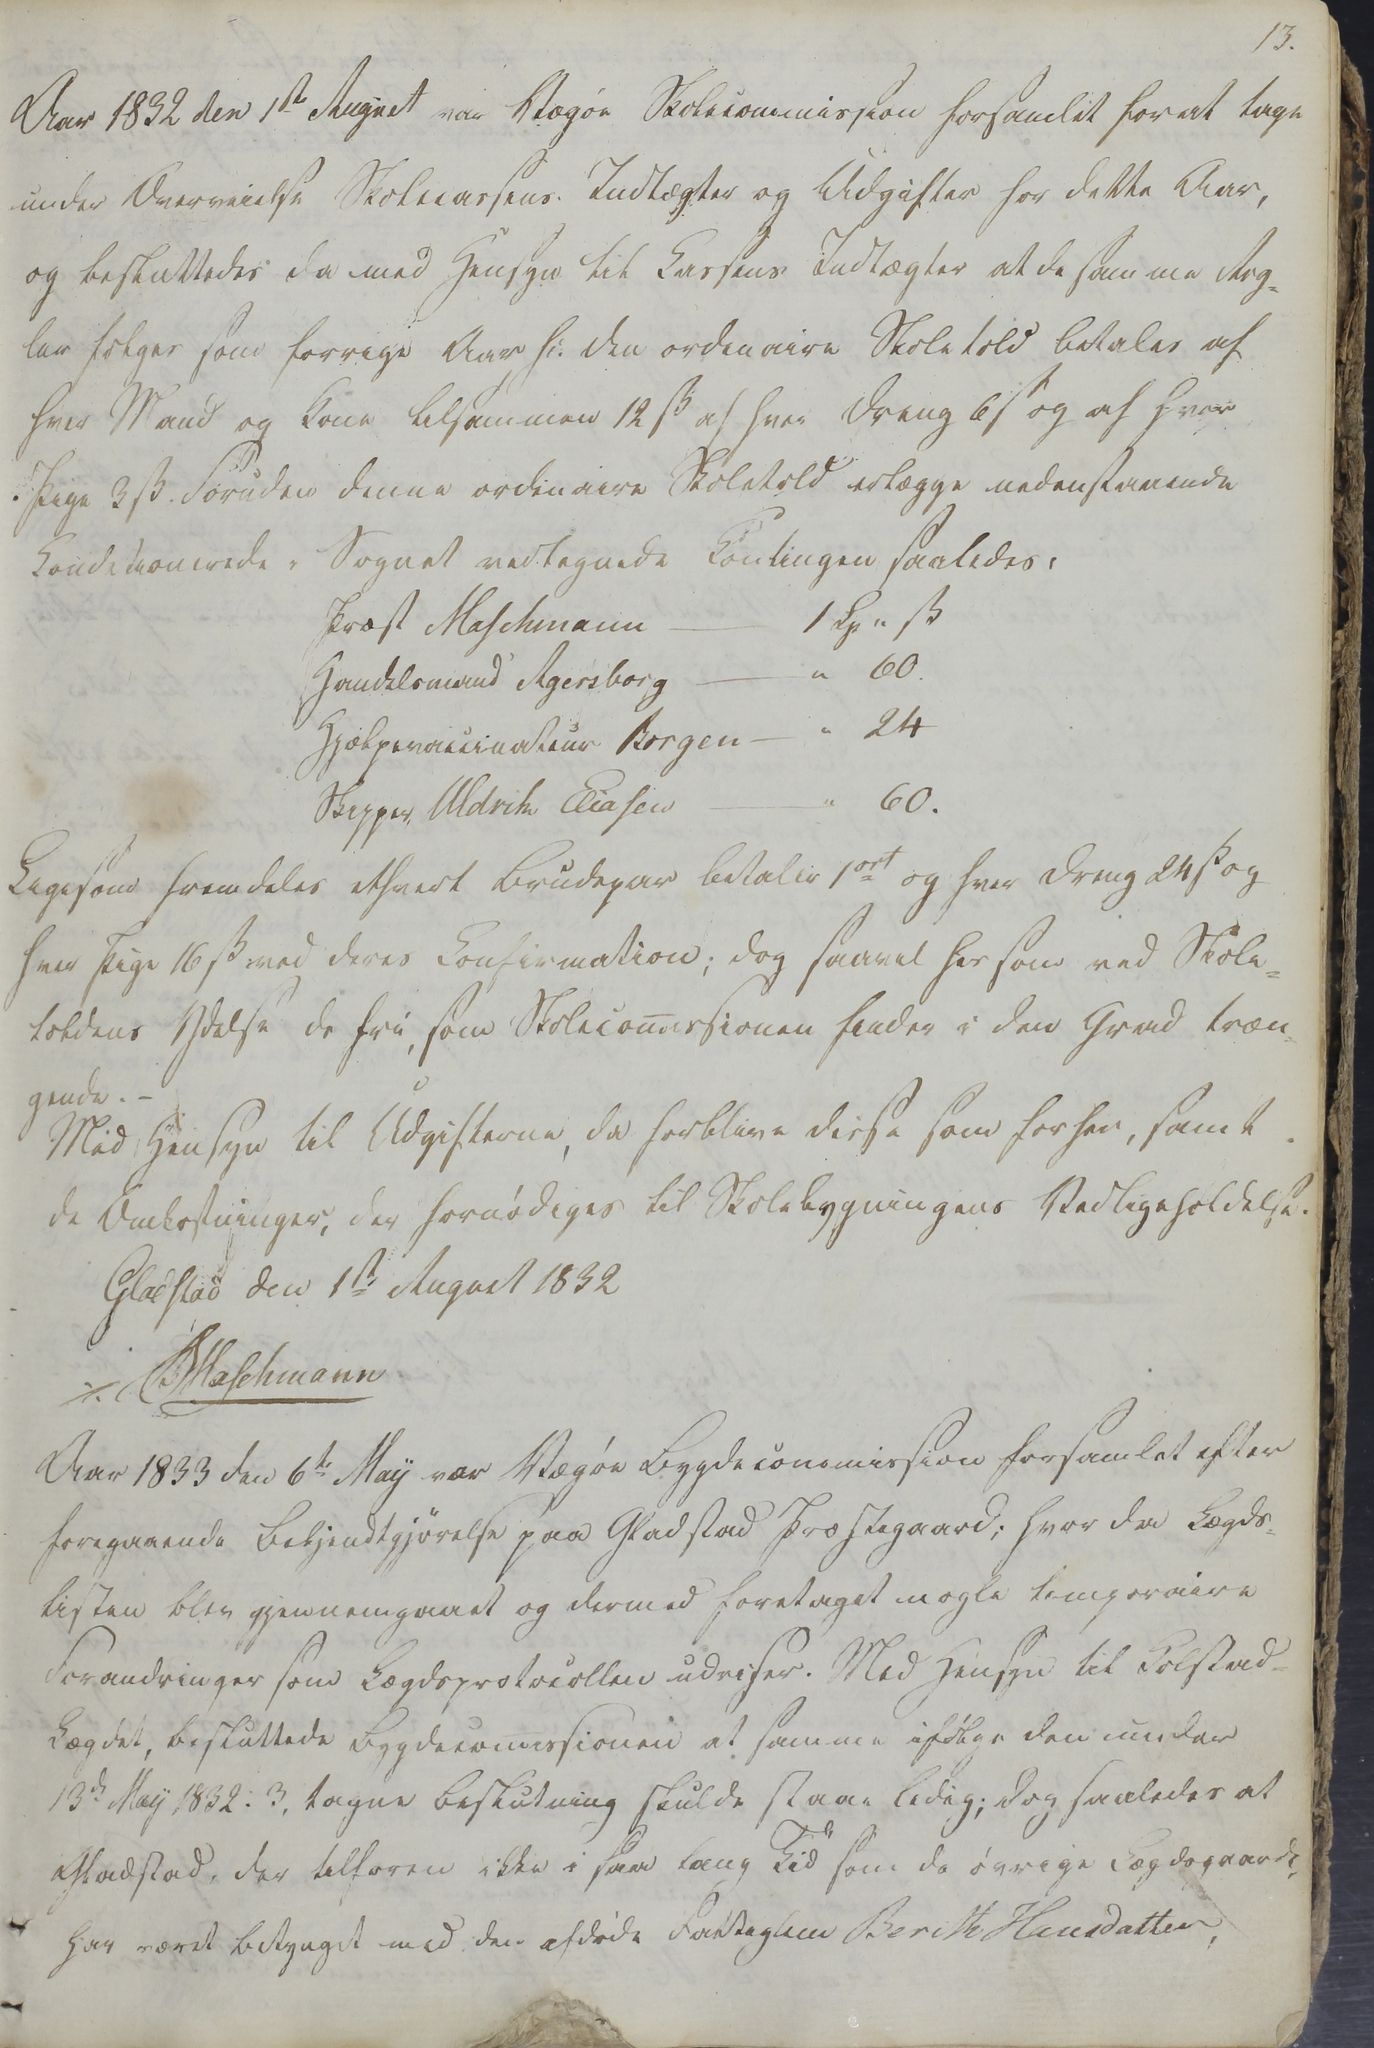 13.
Aar 1832 den 1ste August var Vægøe Skolecommission forsamlet for at tage
under Overveielse Skolecassens Indtægter og Udgifter for dette Aar,
og besluttedes da med Hensyn til Cassens Indtægter at de samme Reg-
ler følges som forrige Aar, h: den ordinaire Skoletold betales af
hver Mand og Kone tilsammen 12 ß af hver Dreng 6 ß og af hver
Pige 3 ß. Foruden denne ordinaire Skoletold erlægge nedenstaaende
Conditionerede i Sognet vedtegnede Contingen saaledes:
Præst Maschmann — 1 Sp " ß
Handelsmand Agersborg — " 60.
Hjælpevaccinateur Borgen — " 24
Skipper Uldrik Eliasen — " 60.
Ligesom fremdeles ethvert Brudepar betaler 1 ort og hver Dreng 24 ß og
hver Pige 16 ß ved deres Confirmation; dog saavel her som ved Skole-
toldens Ydelse de fri, som Skolecom̄issionen finder i den Grad træn-
gende. –
Med Hensyn til Udgifterne, da forblive disse som forhen, samt
de Omkostninger, der fornødiges til Skolebygningens Vedligeholdelse.
Gladstad den 1ste August 1832
Maschmann
Aar 1833 den 6te May var Vægøe Bygdecommission forsamlet efter
foregaaende Bekjendtgjørelse paa Gladstad Præstegaard; hvor da Lægds-
listen blev gjennemgaaet og dermed foretaget nogle temporaire
Forandringer som Lægdsprotocollen udviser. Med Hensyn til Kolstad-
Lægdet, besluttede Bygdecom̄issionen at samme ifølge den under
13de May 1832: 3, tagne Beslutning skulde staae ledig; dog saaledes at
Gladstad, der tilforen ikke i saa lang Tid som de øvrige Lægdsgaarde,
har været betynget med den afdøde Fattiglem Berith Hansdatter,